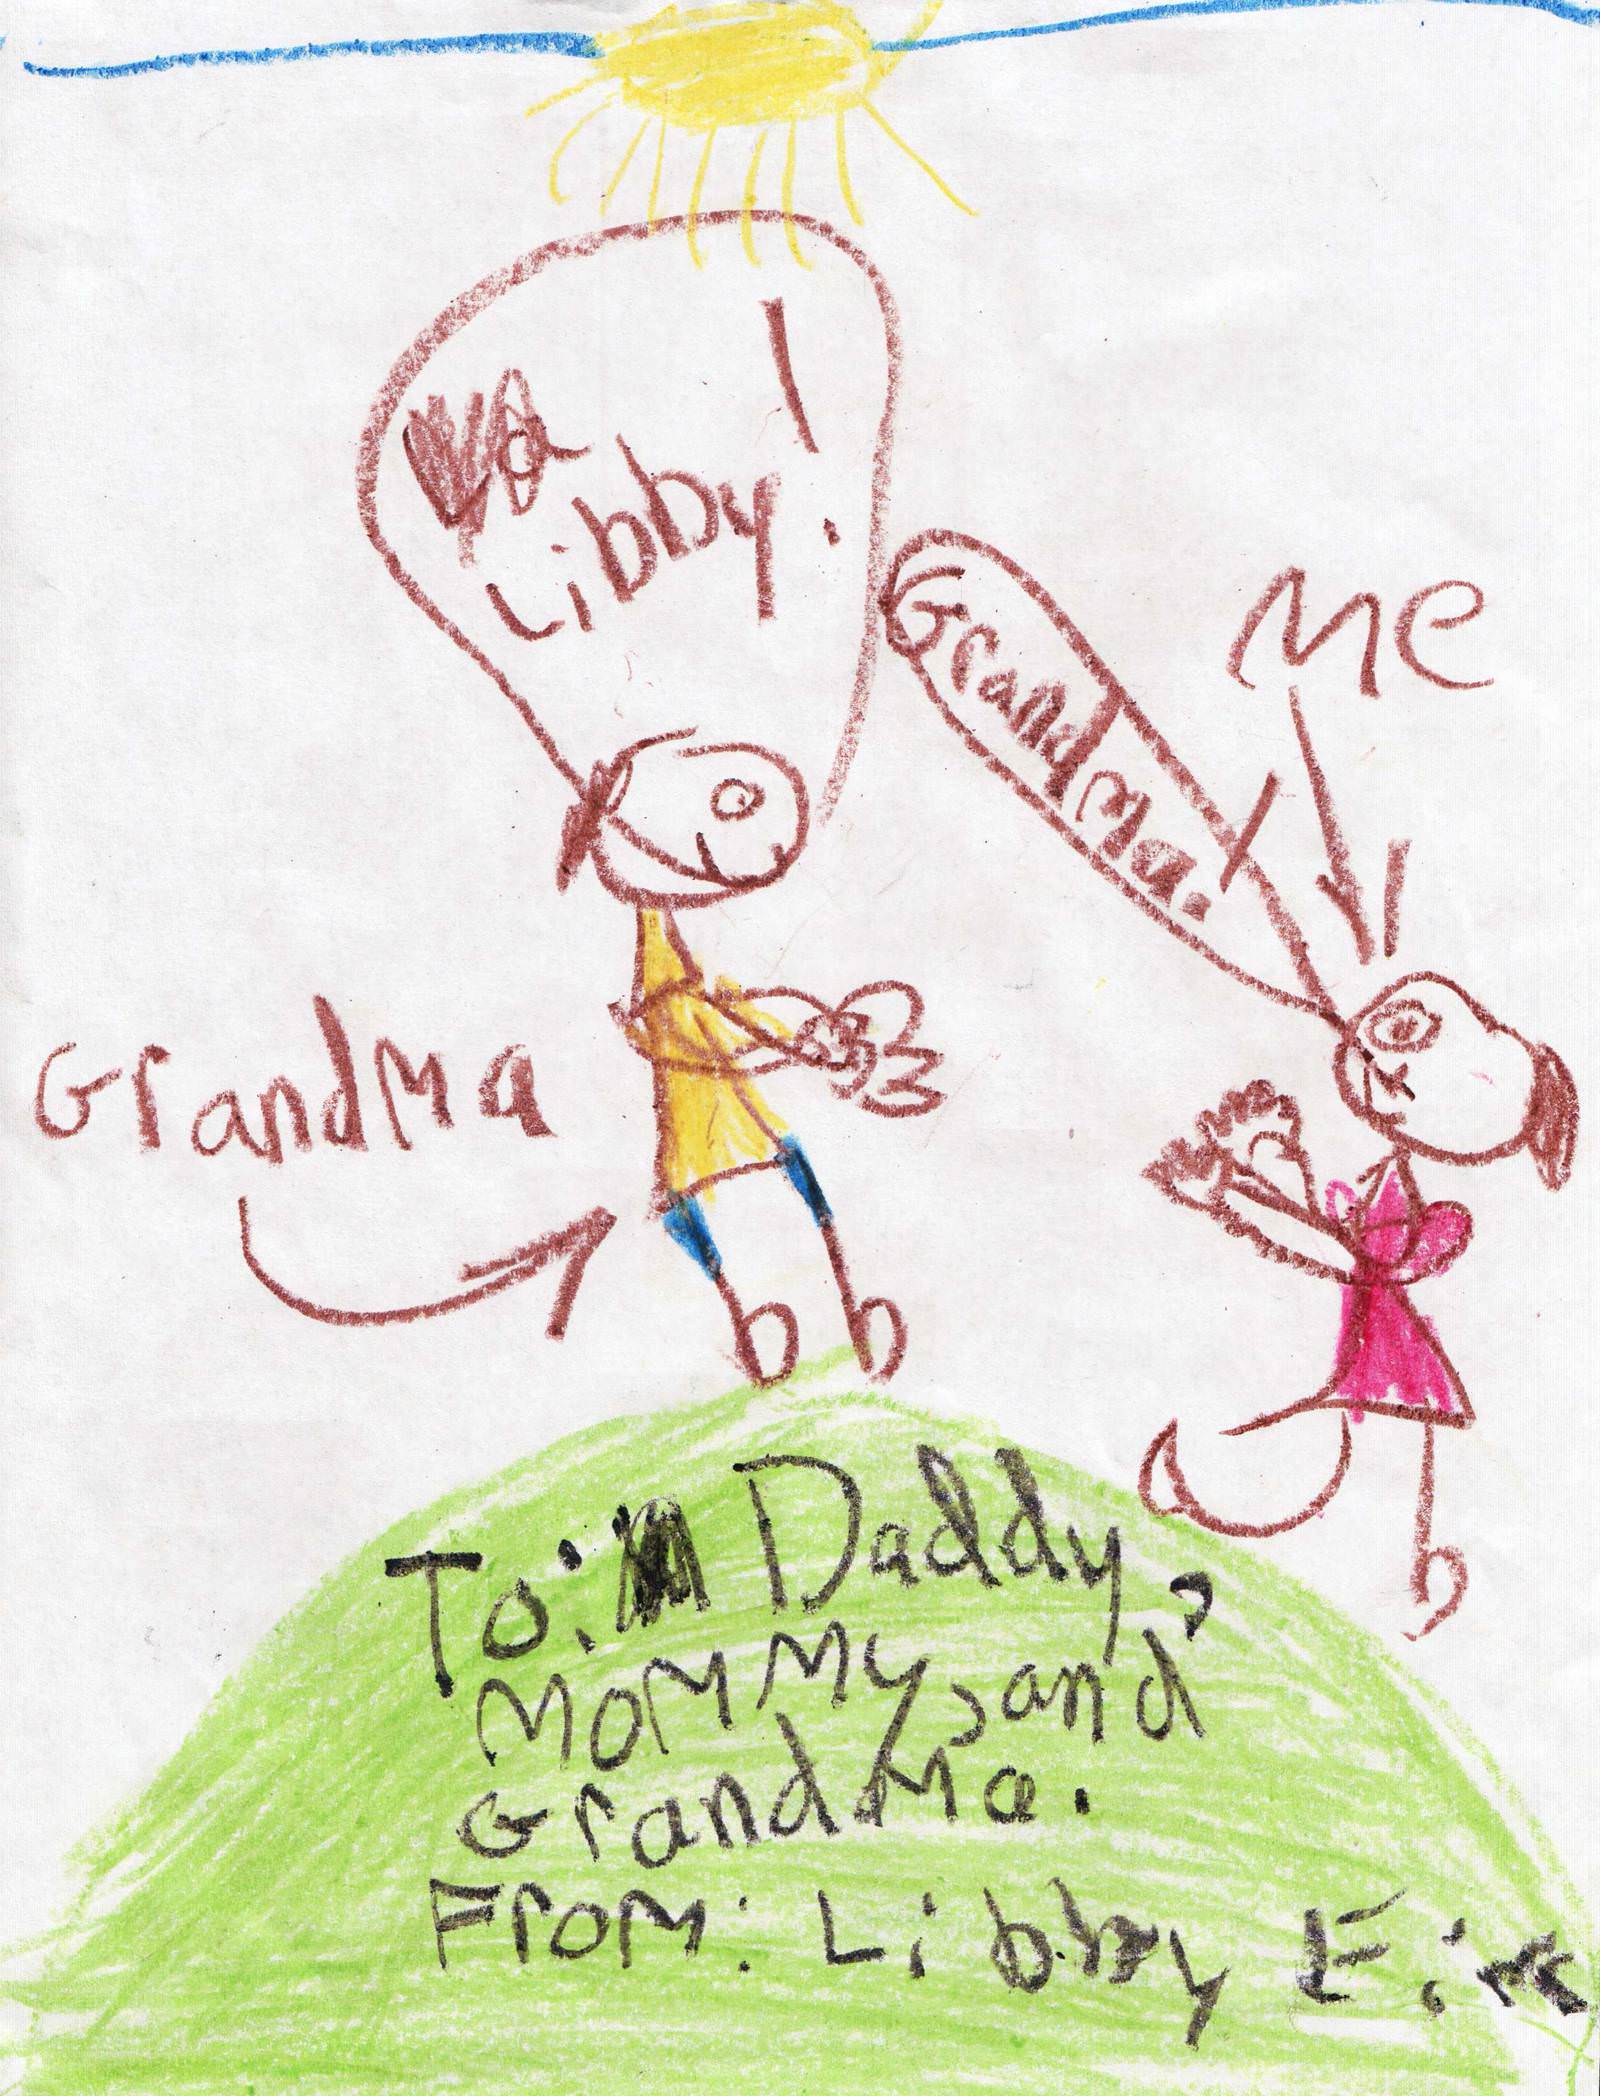 Libby!
Grandma.
Me
Grandma
To: Daddy,
Mommy, and
Grandma.
From: Libby